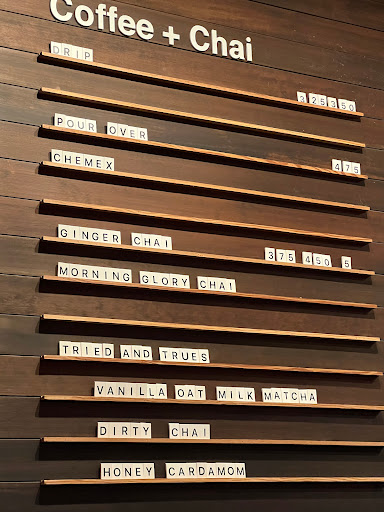 Coffee + Chai
DRIP 3 25 350
POUR OVER 475
CHEMEX
GINGER CHAI 375 450 5
MORNING GLORY CHAI
TRIED AND TRUES
VANILLA OAT MILK MATCHA
DIRTY CHAI
HONEY CARDAMOM